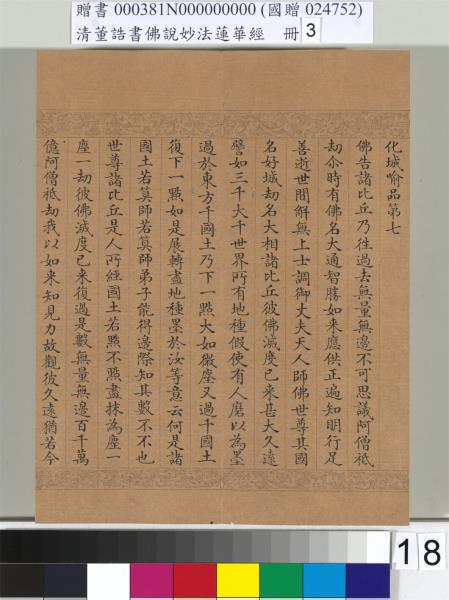 贈書 000381N000000000 (國贈 024752)
清董誥書佛說妙法蓮華經 冊 3
化城喻品第七
佛告諸比丘乃往過去無量無邊不可思議阿僧祇
劫尒時有佛名大通智勝如來應供正遍知明行足
善逝世間解無上士調御丈夫天人師佛世尊其國
名好城劫名大相諸比丘彼佛滅度已來甚大久遠
譬如三千大千世界所有地種假使有人磨以為墨
過於東方千國土乃下一點大如微塵又過千國土
復下一點如是展轉盡地種墨於汝等意云何是諸
國土若筭師若筭師弟子能得邊際知其數不不也
世尊諸比丘是人所經國土若點不點盡抹為塵一
塵一劫彼佛滅度已來復過是數無量無邊百千萬
億阿僧祇劫我以如來知見力故觀彼久遠猶若今
18